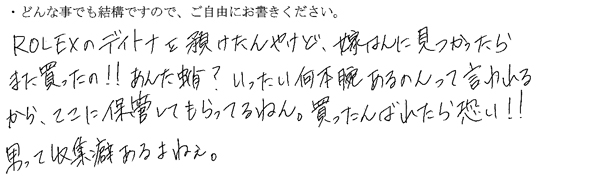 ・どんな事でも結構ですので、ご自由にお書きください。
ROLEXのデイトナを預けたんやけど、嫁はんに見つかったら
また買ったの!!あんた蛸?いったい何本腕あるのんって言われる
から、ここに保管してもらってるねん。買ったんばれたら恐い!!
男って収集癖あるよねぇ。